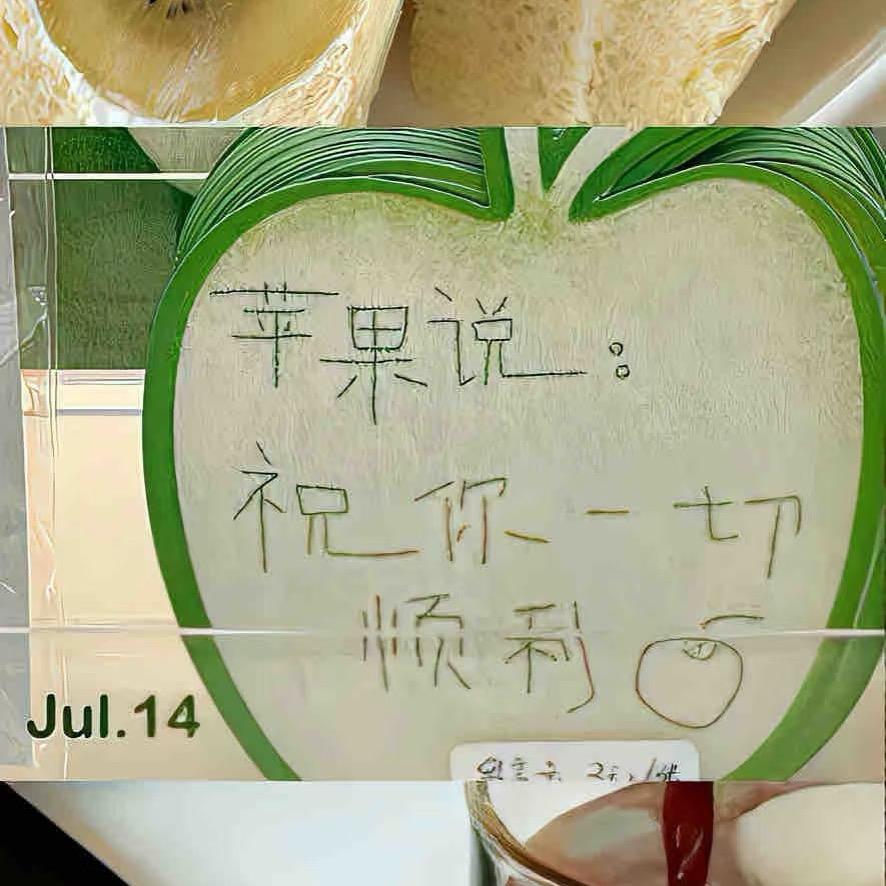 苹果说:
祝你一切
顺利
Jul.14